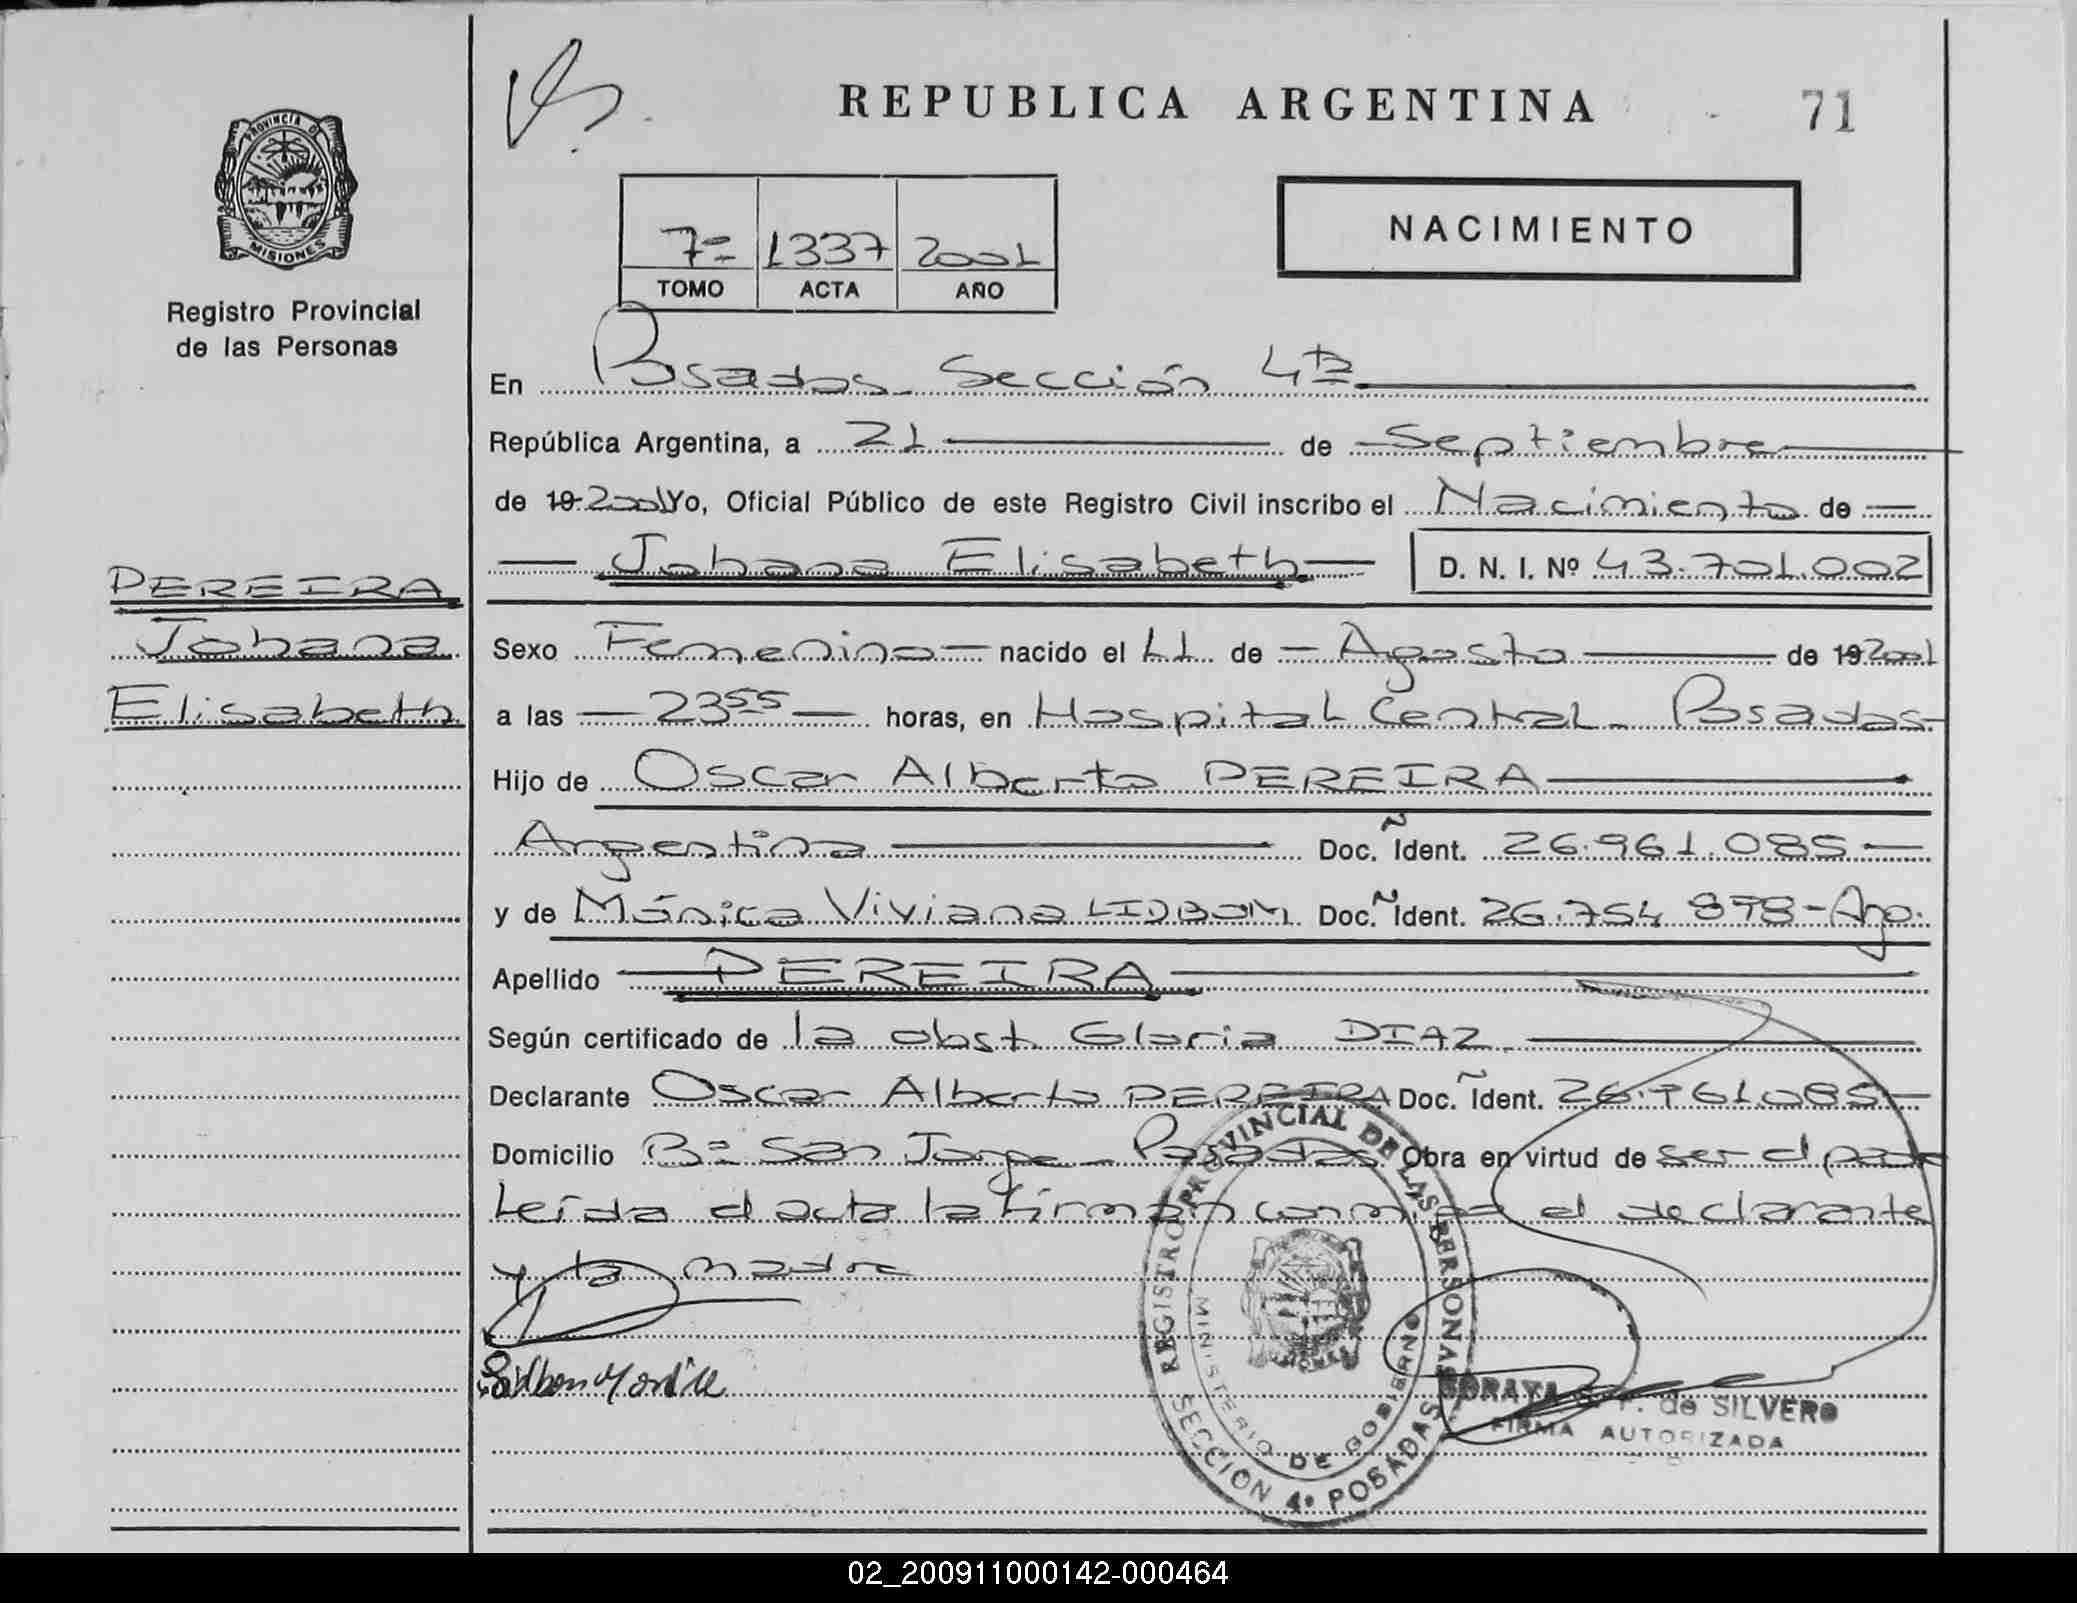 REPUBLICA ARGENTINA
71
PROVINCIA DE
MISIONES
Registro Provincial
de las Personas
NACIMIENTO
7º 1337 2001
TOMO ACTA AÑO
En Posadas - Sección 4ta
República Argentina, a 21 de Septiembre
de 19 2001 Yo, Oficial Público de este Registro Civil inscribo el Nacimiento de
Johana Elisabeth D. N. I. Nº 43.701.002
PEREIRA
Johana
Elisabeth
Sexo Femenino nacido el 11 de Agosto de 19 2001
a las 23 55 horas, en Hospital Central - Posadas
Hijo de Oscar Alberto PEREIRA
Argentina Doc. Ñ Ident. 26.961.085
y de Mónica Viviana LIDBOM Doc. Ñ Ident. 26.754 878 - Arg.
Apellido PEREIRA
Según certificado de la obst. Gloria DIAZ
Declarante Oscar Alberto PEREIRA Doc. Ñ Ident. 26.961.085
Domicilio Bº San Jorge - Posadas Obra en virtud de ser el padre
Leída el acta la firman conmigo el declarante
y la madre
REGISTRO PROVINCIAL DE LAS PERSONAS
MINISTERIO DE GOBIERNO
SECCION 4º POSADAS
SORAYA de SILVERO
FIRMA AUTORIZADA
02_200911000142-000464